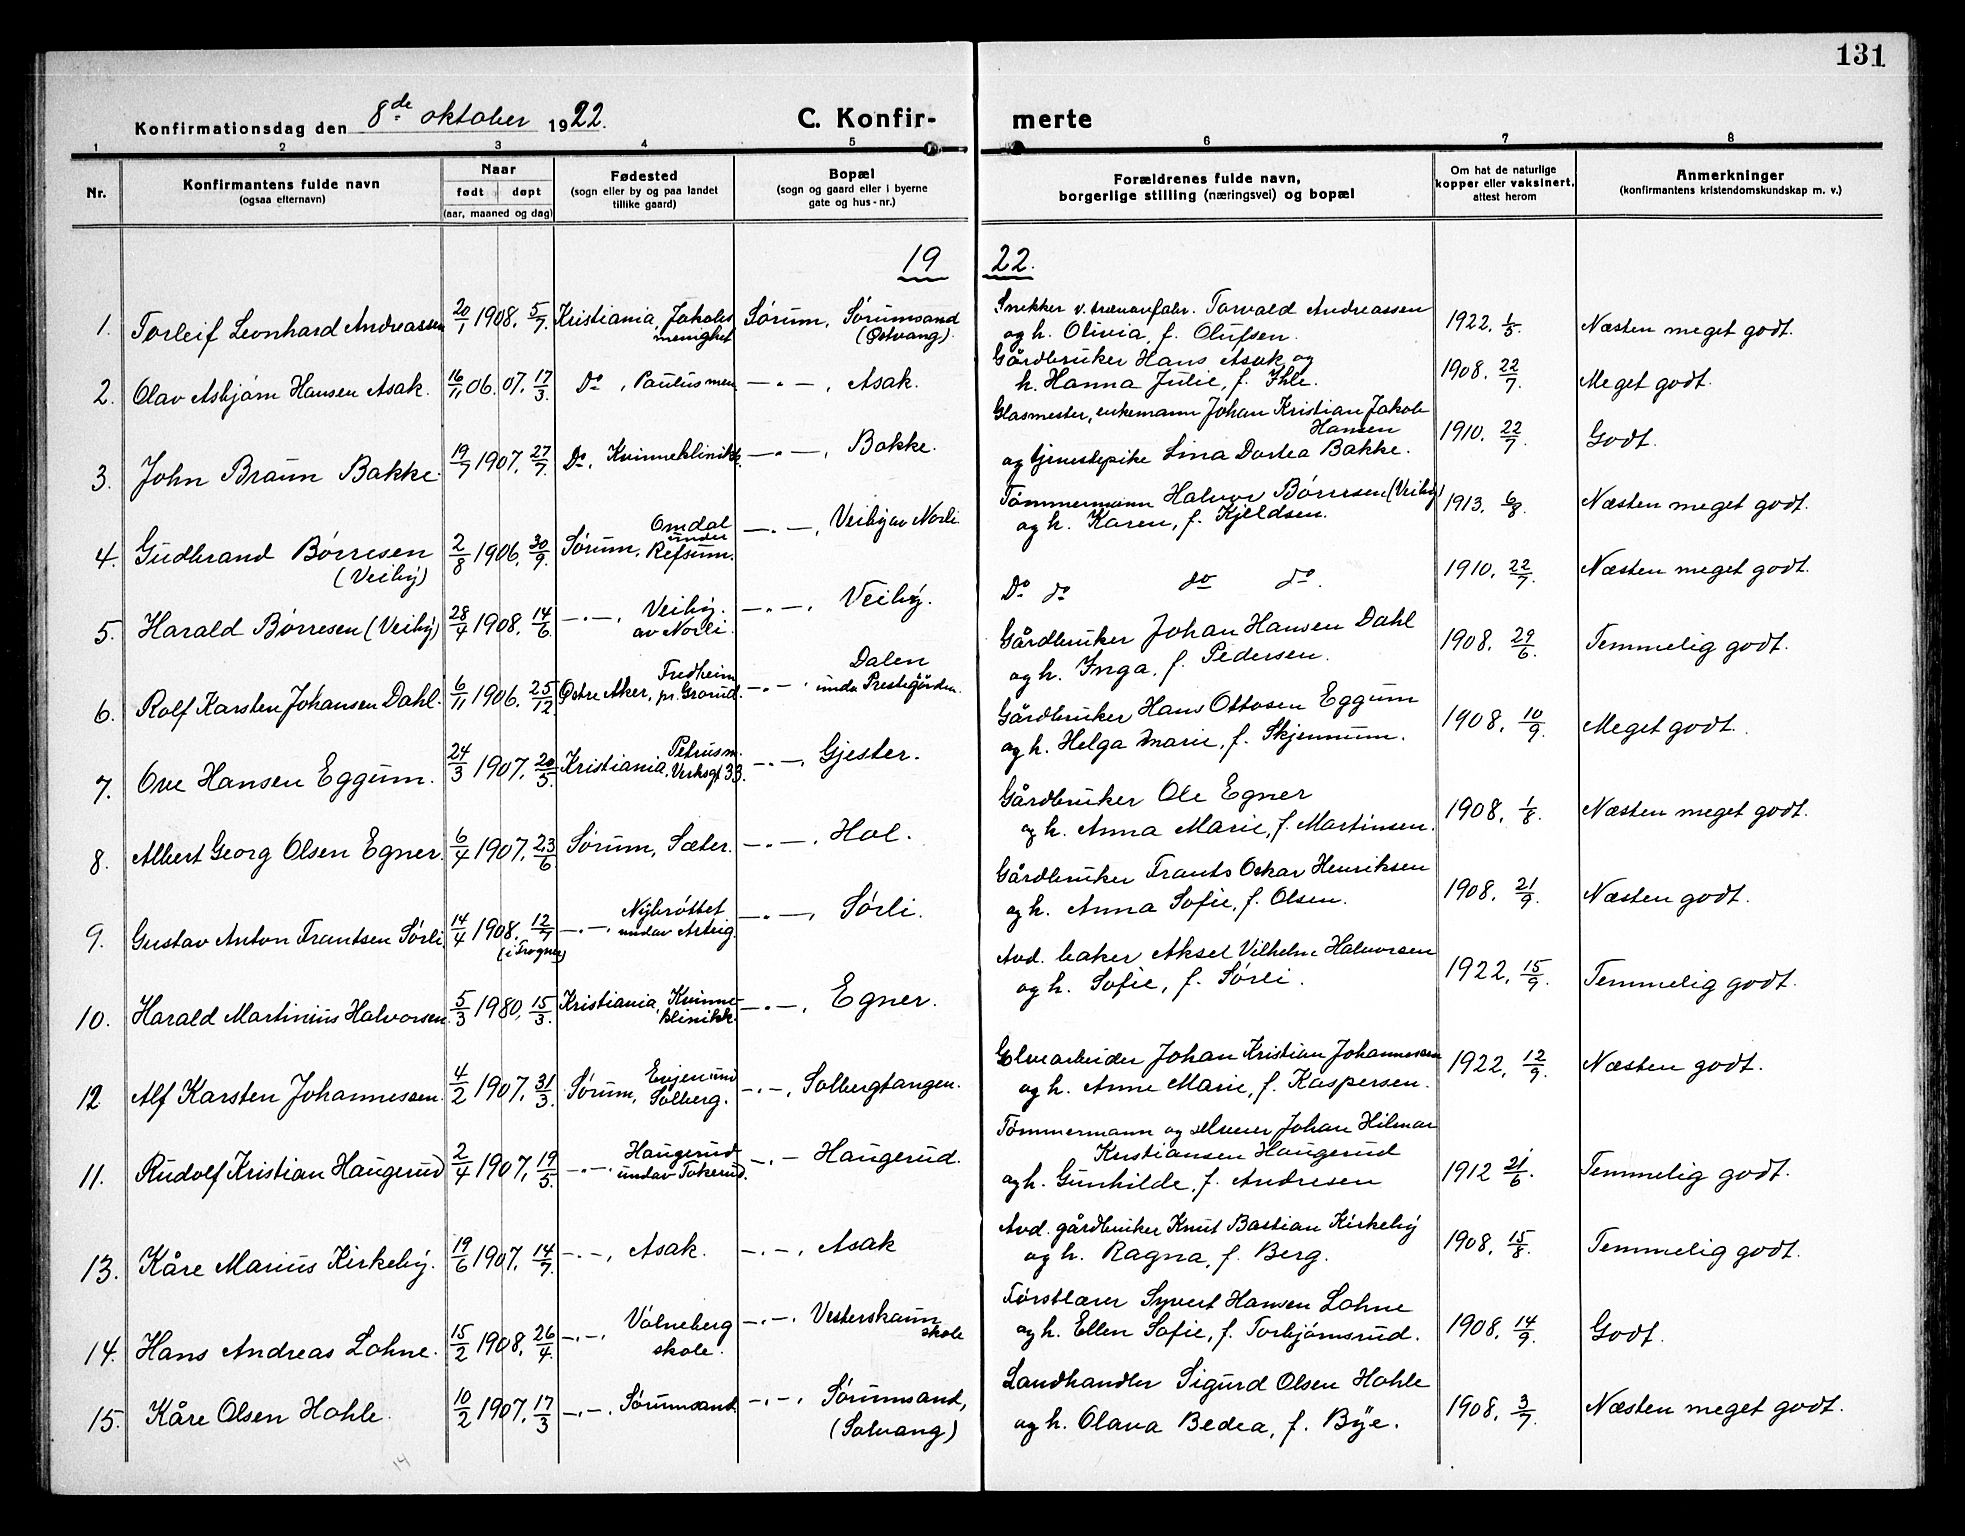 131
Konfirmationsdag den 8de oktober 1922.
C. Konfir-
merte
1 2 3 4 5 6 7 8
Nr.
Konfirmantens fulde navn
(ogsaa efternavn)
Naar
født døpt
(aar, maaned og dag)
Fødested
(sogn eller by og paa landet
tillike gaard)
Bopæl
(sogn og gaard eller i byerne
gate og hus-nr.)
Forældrenes fulde navn,
borgerlige stilling (næringsvei) og bopæl
Om hat de naturlige
kopper eller vaksinert,
attest herom
Anmerkninger
(konfirmantens kristendomskundskap m. v.)
19 22.
1. Torleif Leonhard Andreassen 20/1 1908. 5/7. Kristiania, Jakobs
menighet
Sørum, Sørumsand
(Østvang).
Snekker v. trævarefabr. Torvald Andreassen
og h. Olivia, f. Olufsen.
1922. 1/5. Næsten meget godt.
2. Olav Asbjørn Hansen Asak. 16/11 06. 07. 17/3. Do, Paulus men. —"—, Asak.
Gårdbruker Hans Asak og
h. Hanna Julie, f. Ihle.
1908. 22/7. Meget godt.
3. John Braun Bakke. 19/7 1907. 27/7. Do, Kvinneklinikk. —"—, Bakke.
Glasmester, enkemann Johan Kristian Jakob
Hansen
og tjenestepike Lina Dortea Bakke.
1910. 22/7. Godt.
4. Gudbrand Børresen
(Veiby)
2/8 1906. 30/9. Sørum, Omdal
under
Refsum.
—"—, Veiby av Norli
Tømmermann Halvor Børresen (Veiby)
og h. Karen, f. Kjeldsen.
1913. 6/8. Næsten meget godt.
5. Harald Børresen (Veiby) 28/4 1908. 14/6. —"—, Veiby.
av Norli.
—"—, Veiby.
Do do do do.
1910. 22/7. Næsten meget godt.
6. Rolf Karsten Johansen Dahl. 6/11 1906. 25/12. Østre Aker, Fredheim
pr. Grorud.
—"—, Dalen
under Prestegården.
Gårdbruker Johan Hansen Dahl
og h. Inga, f. Pedersen.
1908. 29/6. Temmelig godt.
7. Ove Hansen Eggum. 24/3 1907. 20/5. Kristiania, Petrusm.
Verksgt 33.
—"—, Gjester.
Gårdbruker Hans Ottosen Eggum
og h. Helga Marie, f. Skjennum.
1908. 10/9. Meget godt.
8. Albert Georg Olsen Egner. 6/4 1907. 23/6. Sørum, Sæter. —"—, Hol.
Gårdbruker Ole Egner
og h. Anna Marie, f. Martinsen.
1908. 1/8. Næsten meget godt.
9. Gustav Anton Frantsen Sørli 14/4 1908. 12/7 (i Frogner) —"—, Nybrøttet
undav Asteig.
—"—, Sørli.
Gårdbruker Frants Oskar Henriksen
og h. Anna Sofie, f. Olsen.
1908. 21/9. Næsten godt.
10. Harald Martinius Halvorsen. 5/3 1980. 15/3. Kristiania, Kvinne-
klinikk.
—"—, Egner.
Avd. baker Aksel Vilhelm Halvorsen
og h. Sofie, f. Sørli.
1922. 15/9. Temmelig godt.
12 Alf Karsten Johannessen. 4/2 1907. 31/3. Sørum, Enjen und
Solberg.
—"—, Solbergtangen.
Elvearbeider Johan Kristian Johannessen
og h. Anne Marie, f. Kaspersen.
1922. 12/9. Næsten godt.
11. Rudolf Kristian Haugerud 2/4 1907. 19/5. —"—, Haugerud
undav Tokerud.
—"— Haugerud.
Tømmermann og Johan Hilmar
Kristiansen Haugerud
og h. Gunhilde, f. Andresen
1912 21/6. Temmelig godt.
13. Kåre Marius Kirkeby. 19/6 1907. 14/7. —"—, Asak. —"—, Asak
Avd. gårdbruker Knut Bastian Kirkeby
og h. Ragna, f. Berg.
1908. 15/8. Temmelig godt.
14. Hans Andreas Lohne. 15/2 1908. 26/4. —"—, Valneberg
skole.
—"—, Vesterskaun
skole
Førstlærer Syvert Hansen Lohne
og h. Ellen Sofie, f. Torbjørnsrud.
1908. 14/9. Godt.
15. Kåre Olsen Hohle. 10/2 1907. 17/3 —"—, Sørumsand. —"—, Sørumsand,
(Solvang)
Landhandler Sigurd Olsen Hohle
og h. Olava Bedea, f. Bye.
1908. 3/7. Næsten meget godt.
14